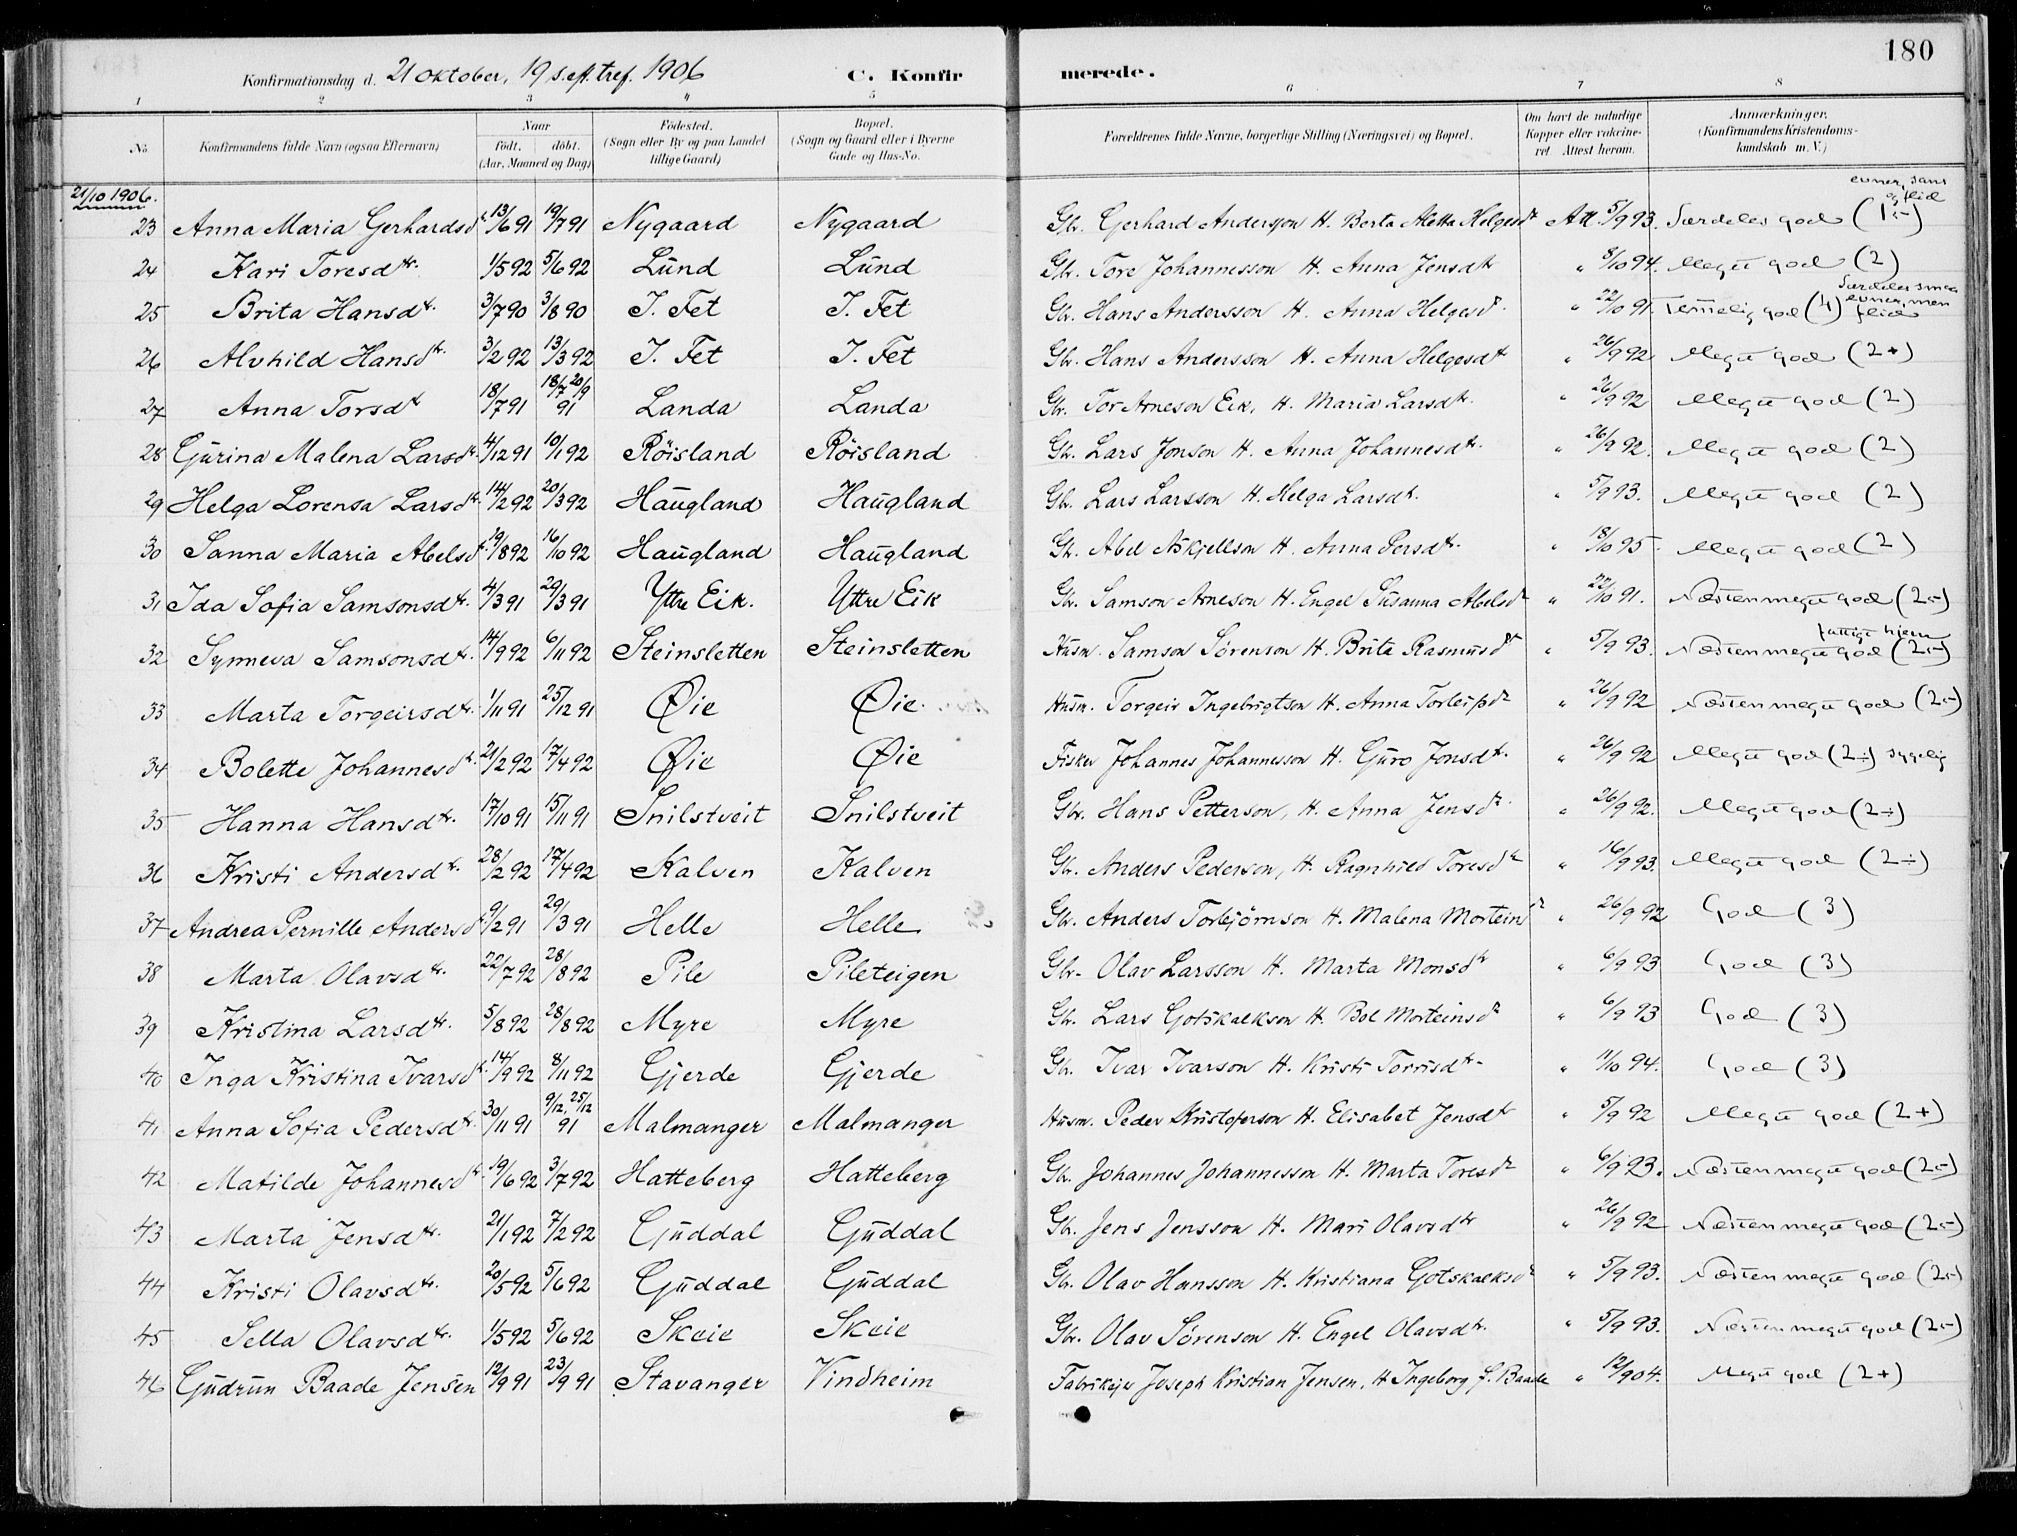 180
Konfirmationsdag d. 21 oktober, 19 s. eft. tref. 1906 C. Konfirmerede.
1 2 3 4 5 6 7 8
No. Konfirmandens fulde Navn (ogsaa Efternavn) Naar født. døbt. (Aar, Maaned og Dag) Fødested. (Sogn eller By og paa Landet tillige Gaard) Bopæl. (Sogn og Gaard eller i Byerne Gade og Hus-No. Forældrenes fulde Navne, borgerlige Stilling (Næringsvei) og Bopæl. Om havt de naturlige Kopper eller vakcineret. Attest herom. Anmærkninger. (Konfirmandens Kristendomskundskab m. V.)
21/10 1906.
23 Anna Maria Gerhardsdtr 13/6 91 19/7 91 Nygaard Nygaard Gbr. Gerhard Andersson H. Berta Aletta Helgesdtr Att. 5/9 93. Særdeles god (1÷) evner, sans og flid
24 Kari Toresdtr. 1/5 92 5/6 92 Lund Lund Gbr. Tore Johannesson H. Anna Jensdtr " 8/10 94. Meget god (2)
25 Brita Hansdtr. 3/7 90 3/8 90 I. Fet I. Fet Gbr. Hans Andersson H. Anna Helgesdr. " 22/10 91. Temelig god (4) Særdeles smaa evner, men flid
26 Alvhild Hansdtr. 3/2 92 13/3 92 I. Fet I. Fet Gbr. Hans Andersson H. Anna Helgesdtr " 26/9 92 Meget god (2+)
27 Anna Torsdtr 18/7 91 18/7 20/9 91 Landa Landa Gbr. Tor Arneson Eik, H. Maria Larsdtr. " 26/9 92 Meget god (2)
28 Gjurina Malena Larsdtr. 4/12 91 10/1 92 Røisland Røisland Gbr. Lars Jonson H. Anna Johannesdtr. " 26/9 92. Meget god (2)
29 Helga Lorensa Larsdtr. 14/2 92 20/3 92 Haugland Haugland Gbr. Lars Larsson H. Helga Larsdtr. " 5/9 93. Meget god (2)
30 Sanna Maria Abelsdtr. 19/8 92 16/10 92 Haugland Haugland Gbr. Abel Askjellson H. Anna Persdtr. " 18/10 95. Meget god (2)
31 Ida Sofia Samsonsdtr. 4/3 91 29/3 91 Yttre Eik. Yttre Eik Gbr. Samson Arneson H. Engel Susanna Abelsdr " 22/10 91. Næsten meget god (2÷)
32 Synneva Samsonsdtr. 14/9 92 6/11 92 Steinsletten Steinsletten Husm. Samson Sørenson H. Brita Rasmusdtr " 5/9 93. Næsten meget god (2÷) fattigt hjem
33 Marta Torgeirsdtr. 1/11 91 25/12 91 Øie Øie. Husm. Torgeir Ingebrigtson H. Anna Torleifsdr " 26/9 92 Næsten meget god (2÷)
34 Bolette Johannesdtr. 21/2 92 17/4 92 Øie Øie Fisker Johannes Johannesson H. Guro Jonsdtr. " 26/9 92 Meget god (2÷) sygelig
35 Hanna Hansdtr. 17/10 91 15/11 91 Snilstveit Snilstveit Gbr. Hans Petterson, H. Anna Jensdr. " 26/9 92. Meget god (2÷)
36 Kristi Andersdtr. 28/2 92 17/4 92 Kalven Kalven Gbr. Anders Pederson, H. Ragnhild Toresdtr " 16/9 93. Meget god (2÷)
37 Andrea Pernille Andersdtr. 9/2 91 29/3 91 Helle Helle Gbr. Anders Torbjørnson H. Malena Morteinsdr " 26/9 92 God (3)
38 Marta Olavsdtr. 22/7 92 28/8 92 Pile Pileteigen Gbr. Olav Larsson H. Marta Monsdtr " 6/9 93 God (3)
39 Kristina Larsdtr. 5/8 92 28/8 92 Myre Myre Gbr. Lars Gotskalkson H. Bol Morteinsdr " 6/9 93 God (3)
40 Inga Kristina Ivarsdtr. 14/9 92 8/11 92 Gjerde Gjerde Gbr. Ivar Ivarson H. Kristi Torrisdtr. " 11/10 94. God (3)
41 Anna Sofia Pedersdtr. 30/11 91 9/12, 25/12 91 Malmanger Malmanger Husm. Peder Kristoferson H. Elisabet Jensdtr " 5/9 92 Meget god (2+)
42 Matilde Johannesdtr. 19/6 92 3/7 92 Hatteberg Hatteberg Gbr. Johannes Johannesson H. Marta Toresdr " 6/9 93. Næsten meget god (2÷)
43 Marta Jensdtr. 21/1 92 7/2 92 Guddal Guddal Gbr. Jens Jensson H. Mari Olavsdtr " 26/9 92 Næsten meget god (2÷)
44 Kristi Olavsdtr. 20/5 92 5/6 92 Guddal Guddal Gbr. Olav Hansson H. Kristiana Gotskalksdr " 5/9 93. Næsten meget god (2÷)
45 Sella Olavsdtr. 1/5 92 5/6 92 Skeie Skeie Gbr. Olav Sørenson H. Engel Olavsdtr. " 5/9 93. Næsten meget god (2÷)
46 Gudrun Baade Jensen 12/9 91 23/9 91 Stavanger Vindheim Fabrikeier Joseph Kristian Jensen, H. Ingeborg f. Baade " 12/9 04. Meget god (2+)